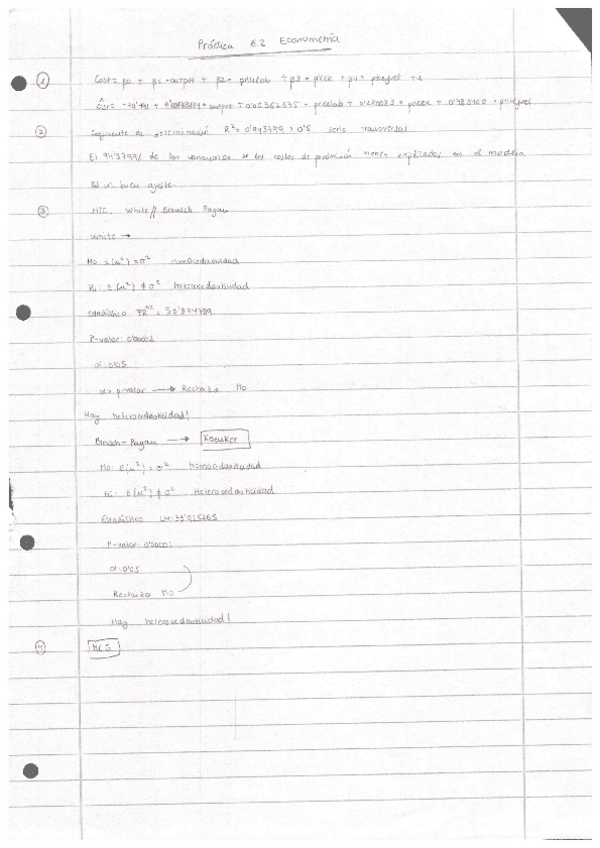 Práctica 6.2 Econometría
① Cost = β0 + β1 · output + β2 · pricelab + β3 · pricek + β4 · pricefuel + u
output + 0'00562535 · pricelab + · pricek + · pricefuel
② Coeficiente de determinación R² = 0'943799 > 0'5 serie transversal
El 94'3799% de las de los costes de producción vienen explicados en el modelo
Es un buen ajuste
③ White // Breusch Pagan
White →
H0: E(u²) = σ² homocedasticidad
H1: E(u²) ≠ σ² heterocedasticidad
Estadístico TR²
P-valor
α: 0'05
α > p-valor → Rechaza H0
Hay heterocedasticidad!
Breusch-Pagan → Koenker
H0: E(u²) = σ² homocedasticidad
H1: E(u²) ≠ σ² heterocedasticidad
Estadístico
P-valor
α: 0'05
Rechaza H0
Hay heterocedasticidad!
④